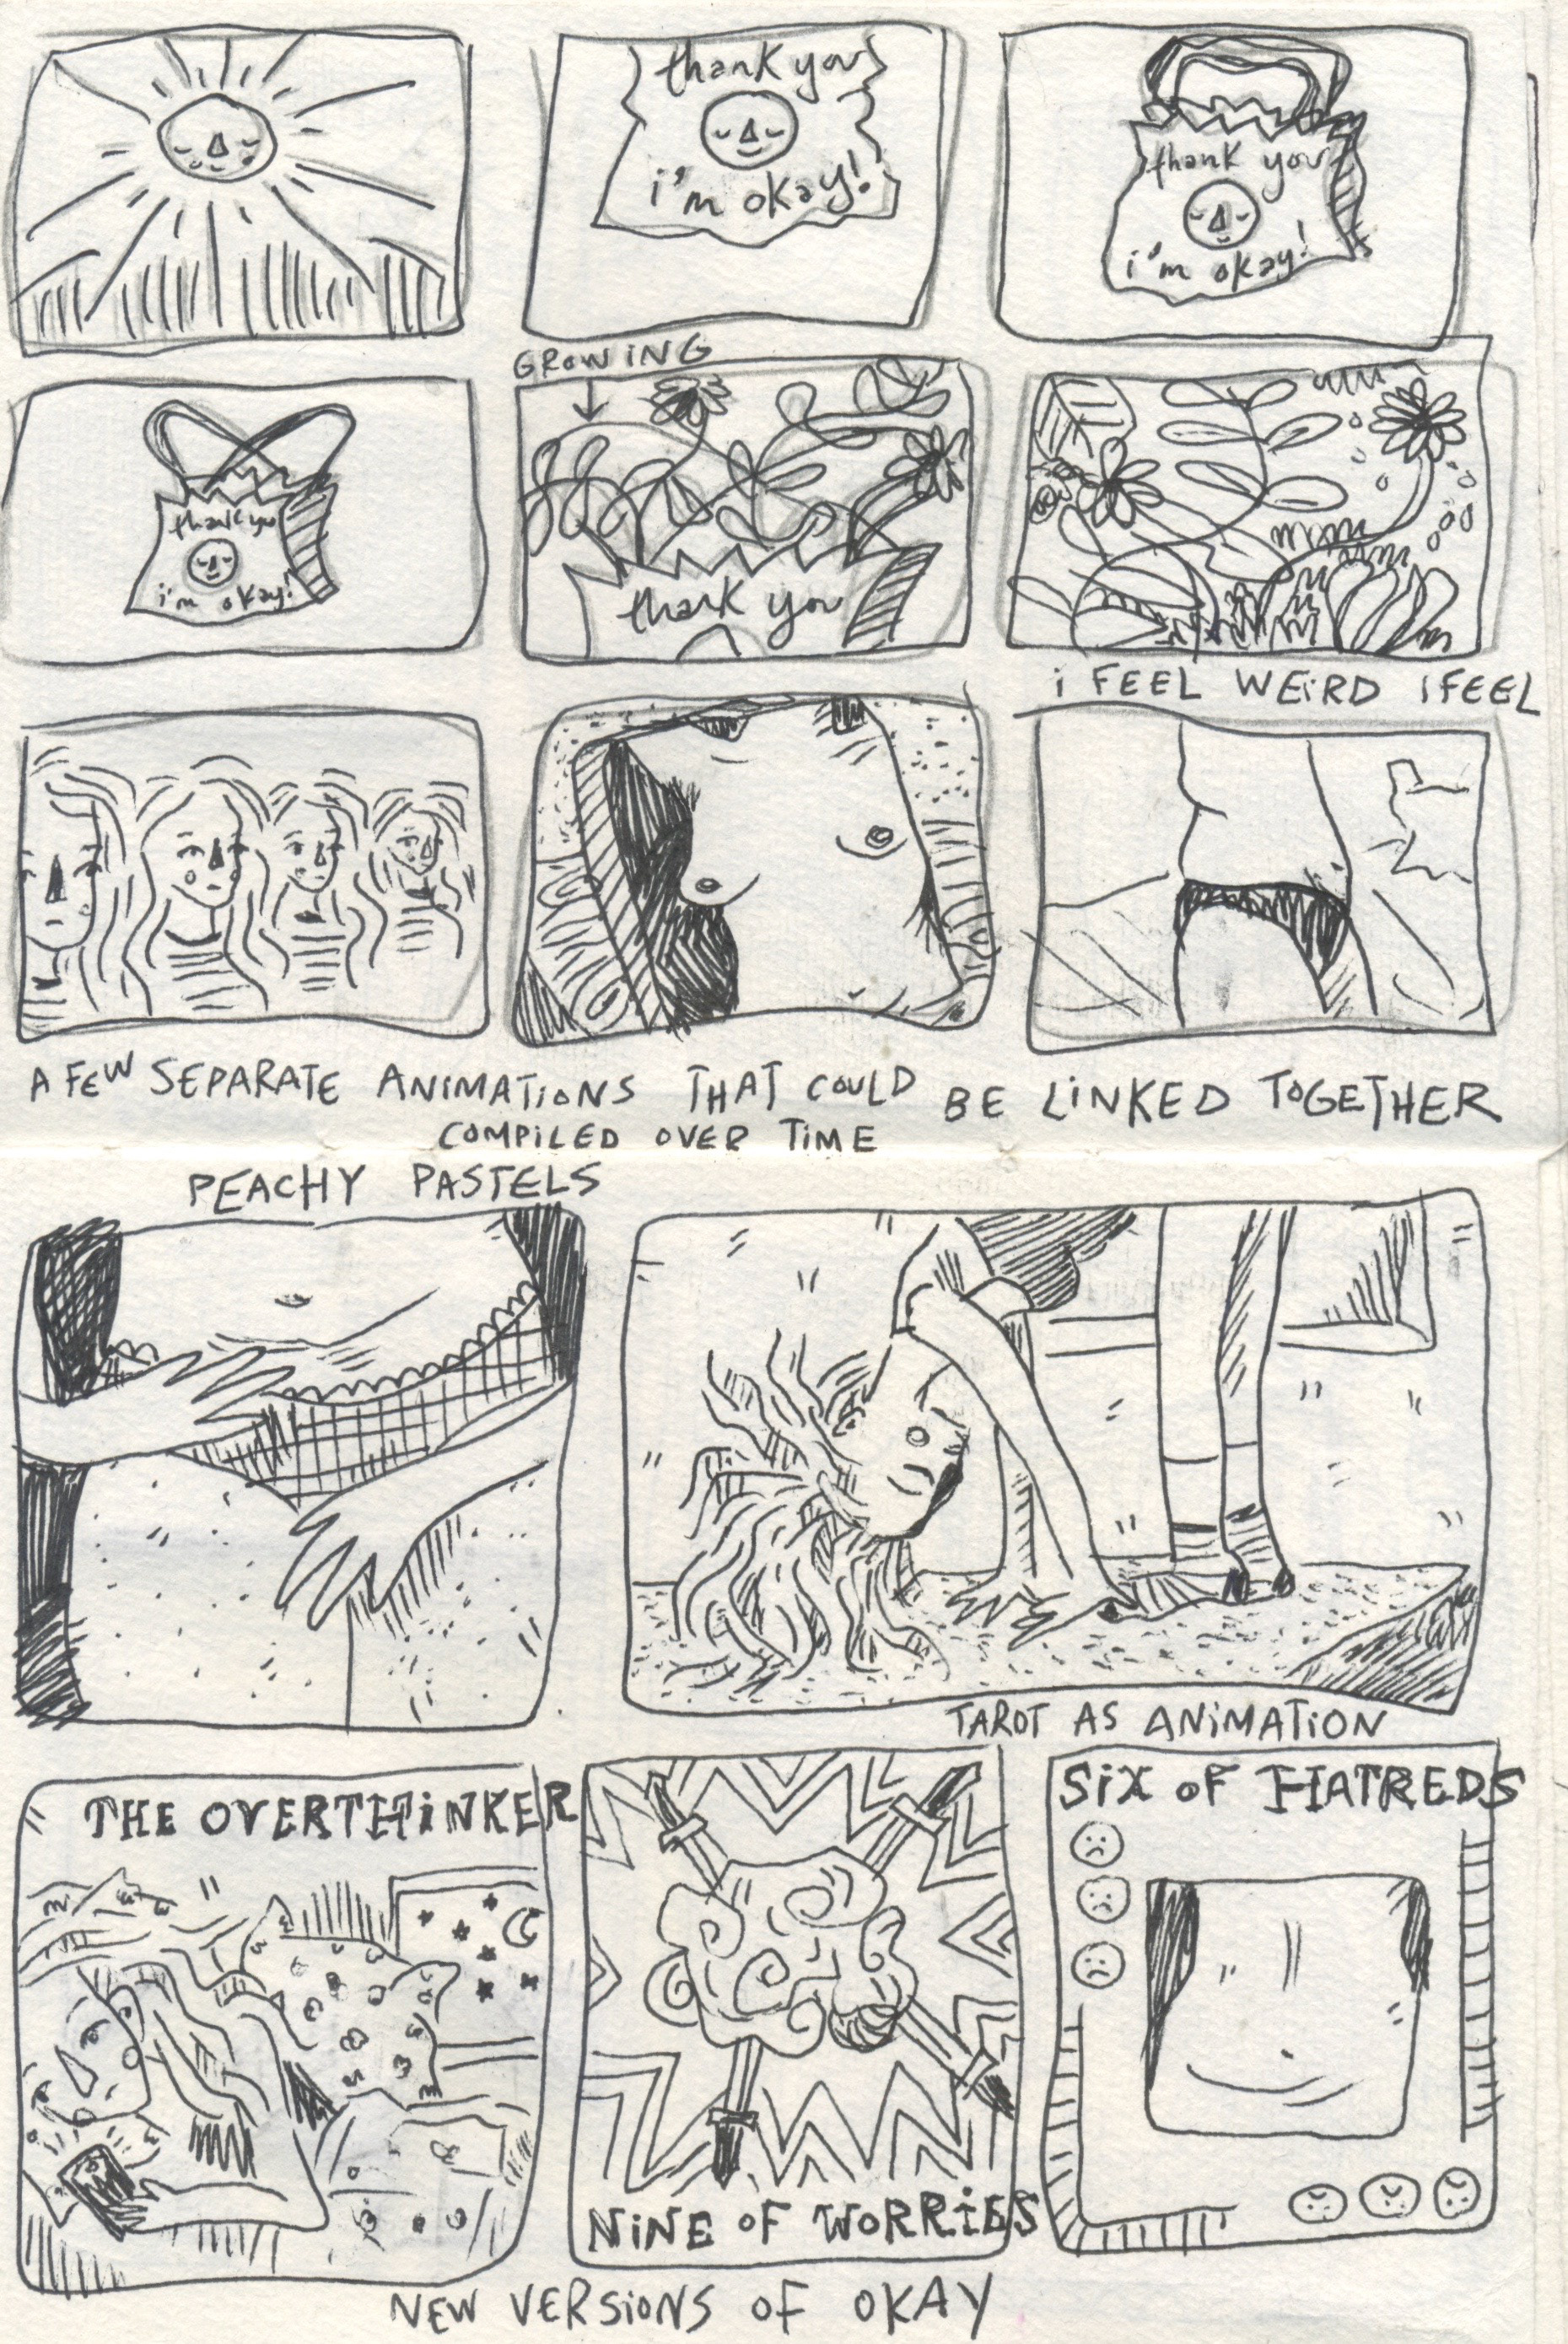 thank you
i'm okay!
thank you
i'm okay!
thank you
i'm okay!
GROWING
thank you
I FEEL WEIRD I FEEL
A FEW SEPARATE ANIMATIONS THAT COULD BE LINKED TOGETHER
COMPILED OVER TIME
PEACHY PASTELS
TAROT AS ANIMATION
THE OVERTHINKER
NINE OF WORRIES
SIX OF HATREDS
NEW VERSIONS OF OKAY